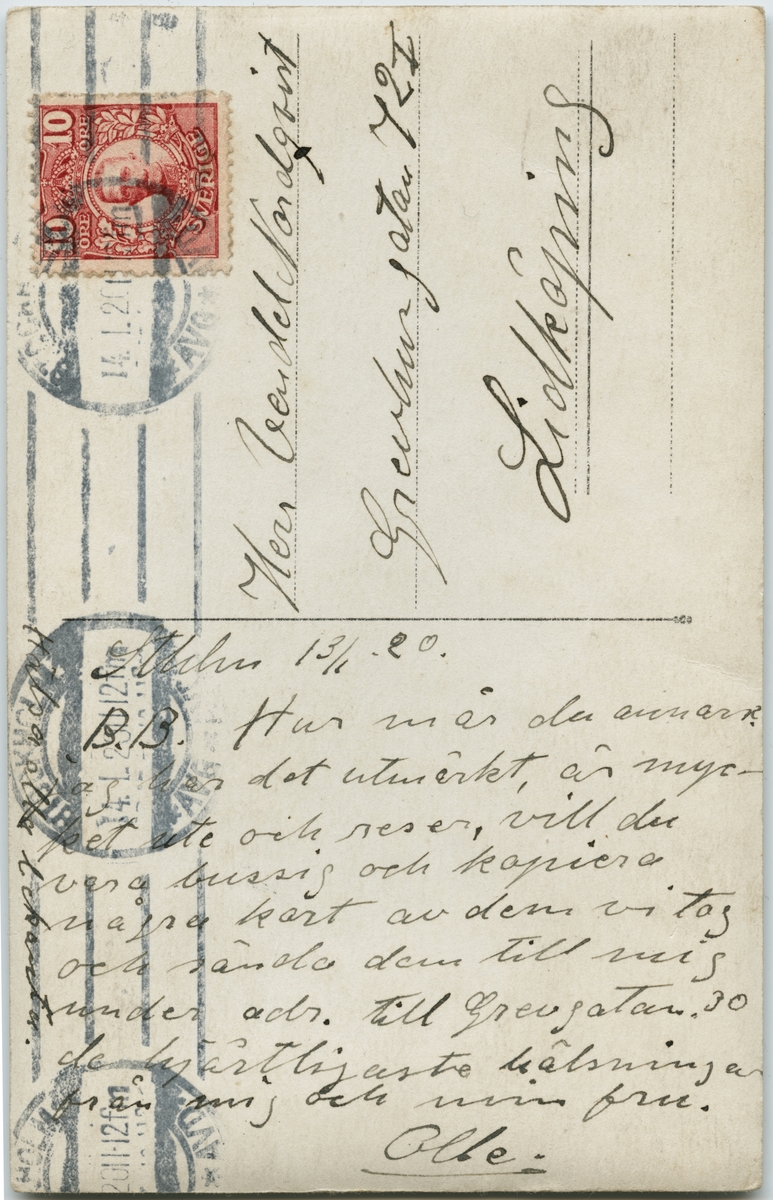 10 ÖRE
10 ÖRE
SVERIGE
14.1.20
AVG
Herr Vendel Nordqvist
Lidköping
Sthlm 13/1 - 20.
B.B. Hur mår du annars.
jag har det utmärkt, är myc-
ket ute och reser, vill du
vara bussig och kopiera
några kort av dem vi tog
och sända dem till mig
under adr. till Grevgatan. 30
de hjärtligaste hälsningar
från mig och min fru.
Olle.
Hälsa alla bekanta.
14.1.20 11-12 fm
20 11-12 fm
AVG